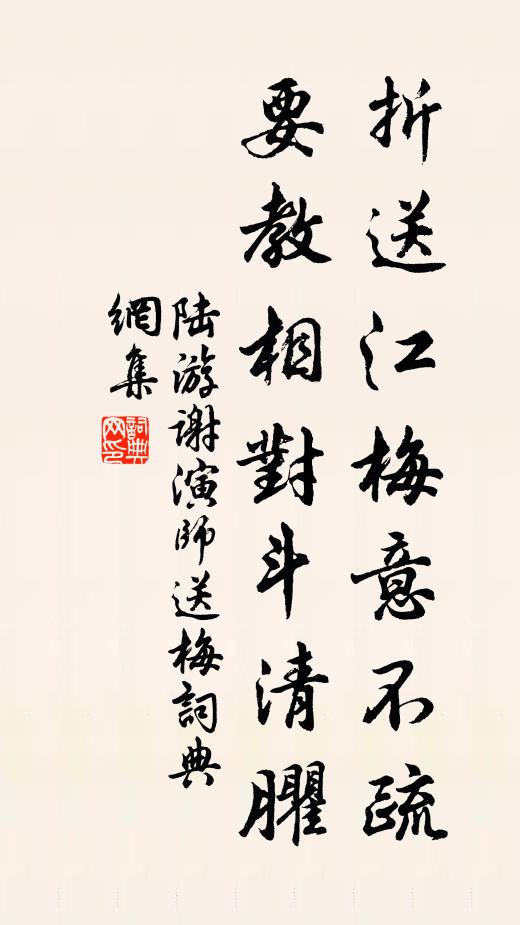 折送江梅意不疏
要教相對斗清臞
陆游谢演師送梅詞典
網集
詞典网印